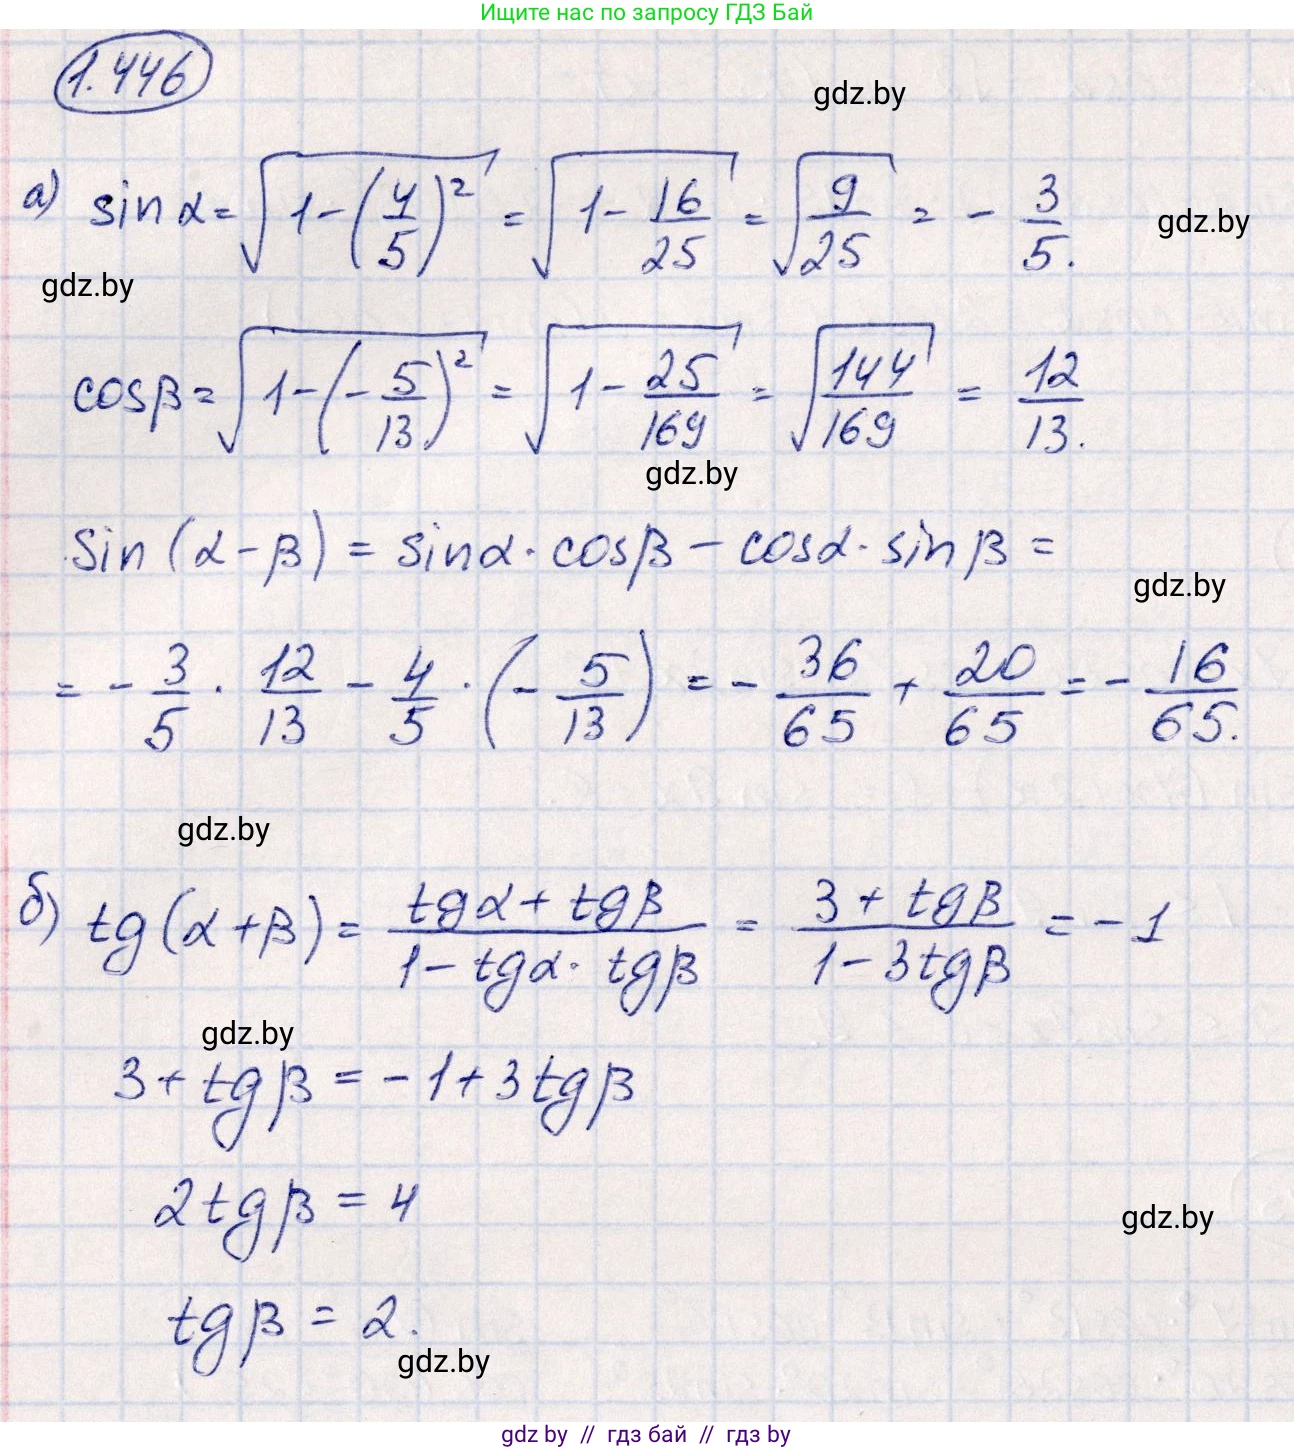 Ищите нас по запросу ГДЗ Бай
1.446
gdz.by
а) sin α = √(1 - (4/5)²) = √(1 - 16/25) = √(9/25) = - 3/5.
gdz.by
gdz.by
cos β = √(1 - (- 5/13)²) = √(1 - 25/169) = √(144/169) = 12/13.
gdz.by
sin (α - β) = sin α · cos β - cos α · sin β =
gdz.by
= - 3/5 · 12/13 - 4/5 · (- 5/13) = - 36/65 + 20/65 = - 16/65.
gdz.by
б) tg (α + β) = (tg α + tg β)/(1 - tg α · tg β) = (3 + tg β)/(1 - 3 tg β) = - 1
gdz.by
3 + tg β = - 1 + 3 tg β
2 tg β = 4
gdz.by
tg β = 2.
gdz.by
gdz by // гдз бай // гдз by